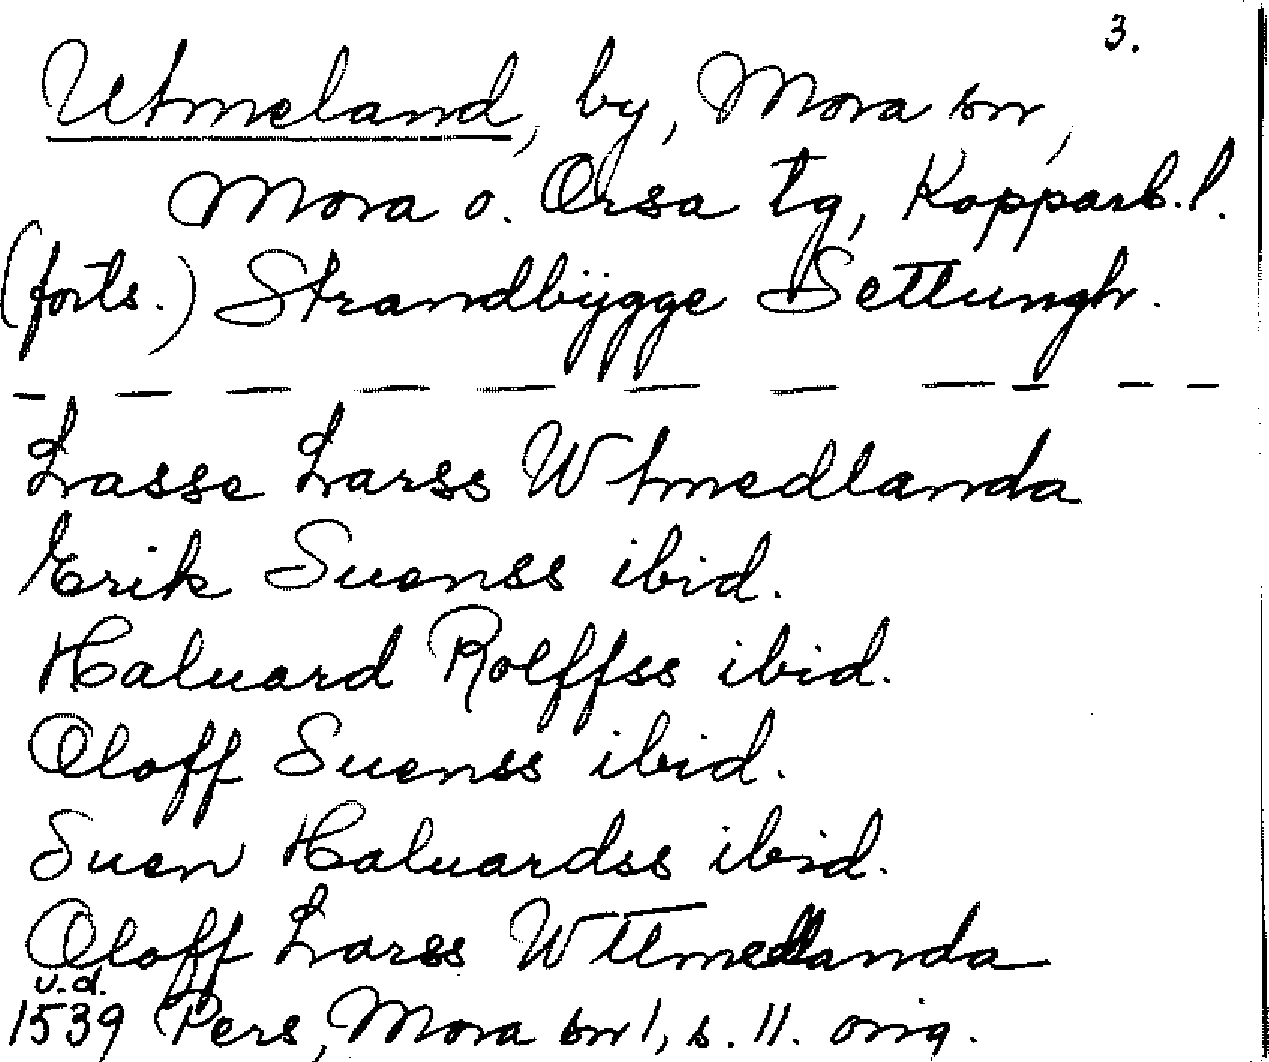 3.
Utmeland, by, Mora sn,
Mora o. Orsa tg, Kopparb. l.
(forts.) Strandbÿgge Settungh.
— — — — — — — — — — —
Lasse Larss Wtmedlanda
Erik Suenss ibid.
Haluard Rolffss ibid.
Oloff Suenss ibid.
Suen Haluardss ibid.
Oloff Larss Wttmedlanda
u.d.
1539 Pers, Mora sn 1, s. 11. orig.